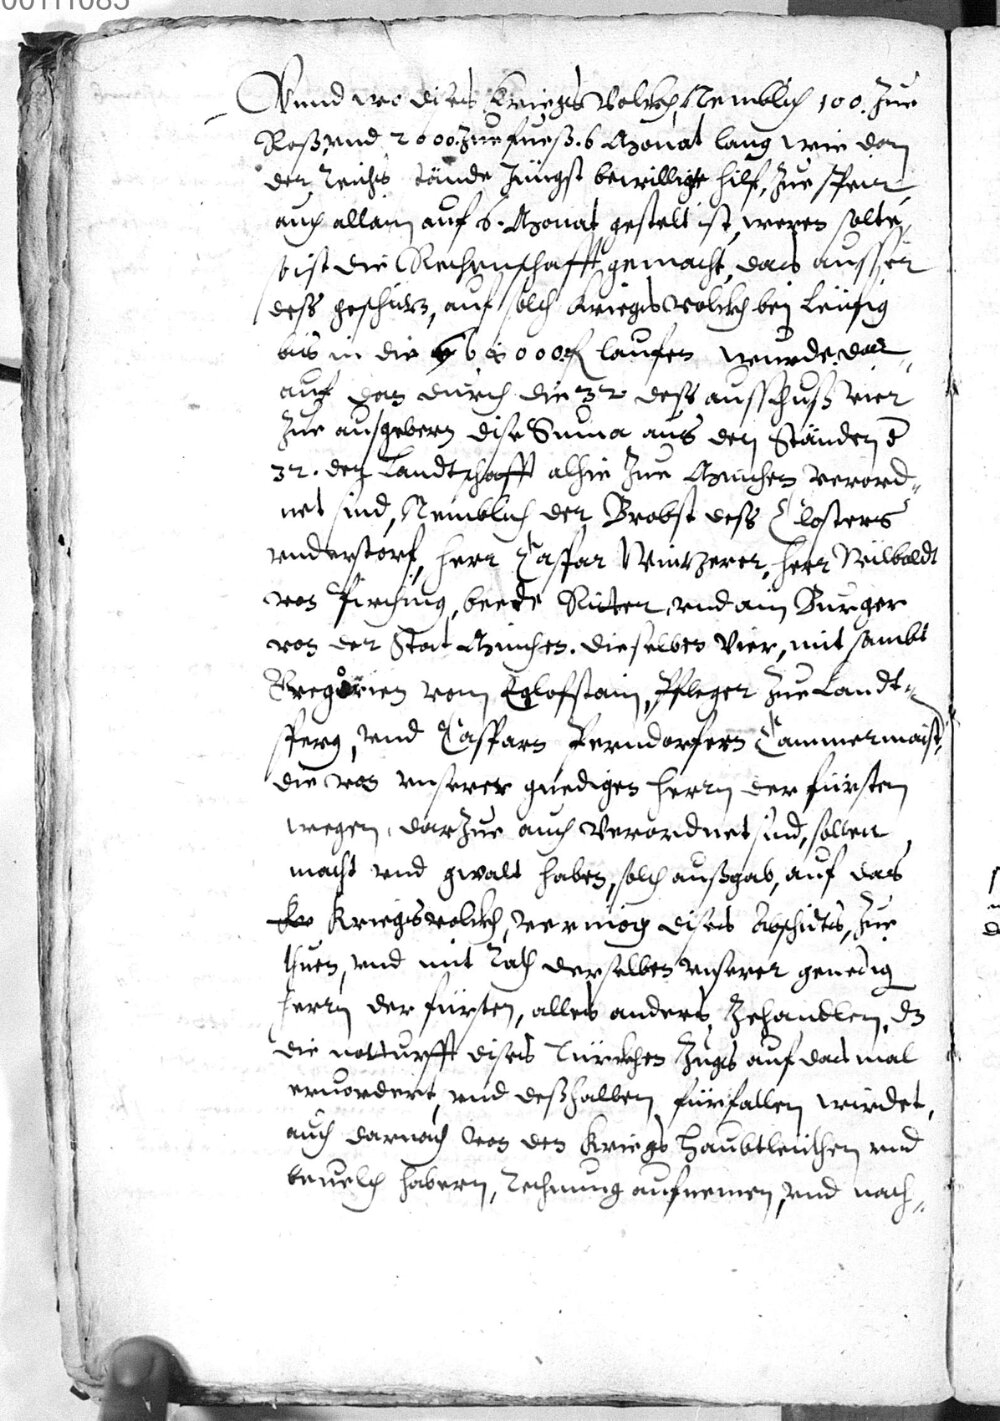 00111085
Unnd wo dises Kriegs Volckh, Nemblich 100. Zue
Roß vnd 2000. Zue fueß. 6 Monat lang wie dan
der Reichs stände Jüngst bewilligte hilf, Zue Speir
auch allain auf 6. Monat gestelt ist, weren solte,
so ist die Rechenschafft gemacht, das ausser
dess geschütz, auf solch Kriegsvolckh bei Leüfig
bis in die 68000 fl laufen wurde, dar„
auf dan durch die 32 dess ausschuß vier
Zue ausgebern diser Suma aus den Ständen d
32. der Landtschafft alhie Zue München verord„
net sind, Nemblich der Brobst dess Closters
vnderstorf, herr Caspar Wintzerer, herr Wilboldt
von Pirching, beede Ritter, vnd ain Burger
von der Stat München. dieselben Vier, mit sambt
Gregorien vom Eglofstain, Pfleger Zue Landt„
sperg, vnd Casparn Perndorfern Cammermaist,
die von vnserer gnedigen herrn der fürsten
wegen, darZue auch Verordnet sind, sollen
macht vnd gwalt haben, solch außgab, auf das
Kriegsvolckh, vermög dises Abschidts, Zue
thuen, vnd mit Rath derselben vnserer genedig
herrn der fürsten, alles anders, Zehandlen, dz
die notturfft dises Türckhen Zugs auf das mal
eruordert, vnd deßhalben fürfallen wirdet,
auch darnach von den Kriegs Haubtleüthen vnd
beuelch habern, Rechnung aufnemen, vnd nach„